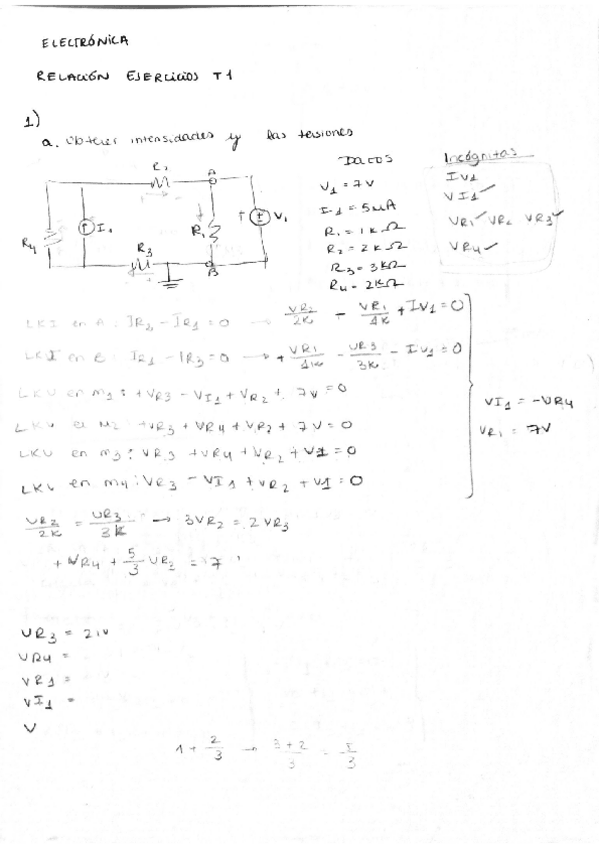 ELECTRÓNICA
RELACIÓN EJERCICIOS T1
1)
a. Obtener intensidades y las tensiones
R2
A
I1
R4
R1
V1
R3
B
DATOS
V1 = 7V
I1 = 5mA
R1 = 1kΩ
R2 = 2kΩ
R3 = 3kΩ
R4 = 2kΩ
Incógnitas
IV1
VI1 ✓
VR1 ✓ VR2 VR3 ✓
VR4 ✓
LKI en A: IR2 - IR1 = 0 → VR2/2K - VR1/1K + IV1 = 0
LKI en B: IR1 - IR3 = 0 → + VR1/1K - VR3/3K - IV1 = 0
LKV en m1: +VR3 - VI1 + VR2 + 7V = 0
LKV en M2: +VR3 + VR4 + VR2 + 7V = 0
LKV en m3: VR3 + VR4 + VR2 + V1 = 0
LKV en m4: VR3 - VI1 + VR2 + V1 = 0
VI1 = -VR4
VR1 = 7V
VR2/2K = VR3/3K → 3VR2 = 2VR3
+ VR4 + 5/3 VR3 = 7
VR3 = 2,1V
VR4 =
VR1 =
VI1 =
V
1 + 2/3 → 3+2/3 = 5/3